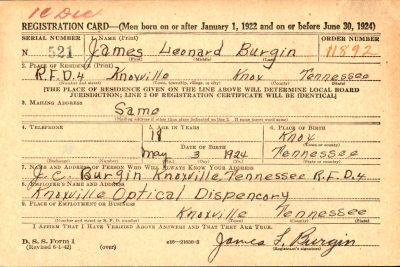 1C Dec
REGISTRATION CARD—(Men born on or after January 1, 1922 and on or before June 30, 1924)
SERIAL NUMBER 1. NAME (Print) ORDER NUMBER
N 521 James Leonard Burgin 11892
(First) (Middle) (Last)
2. PLACE OF RESIDENCE (Print)
R.F.D.4 Knoxville Knox Tennessee
(Number and street) (Town, township, village, or city) (County) (State)
[THE PLACE OF RESIDENCE GIVEN ON THE LINE ABOVE WILL DETERMINE LOCAL BOARD
JURISDICTION; LINE 2 OF REGISTRATION CERTIFICATE WILL BE IDENTICAL]
3. MAILING ADDRESS
Same
[Mailing address if other than place indicated on line 2. If same insert word same]
4. TELEPHONE 5. AGE IN YEARS 6. PLACE OF BIRTH
18 Knox
DATE OF BIRTH (Town or county)
May 3 1924 Tennessee
(Exchange) (Number) (Mo.) (Day) (Yr.) (State or country)
7. NAME AND ADDRESS OF PERSON WHO WILL ALWAYS KNOW YOUR ADDRESS
J.C. Burgin Knoxville Tennessee R.F.D.4
8. EMPLOYER'S NAME AND ADDRESS
Knoxville Optical Dispencory
9. PLACE OF EMPLOYMENT OR BUSINESS
Knoxville Tennessee
(Number and street or R. F. D. number) (Town) (County) (State)
I AFFIRM THAT I HAVE VERIFIED ABOVE ANSWERS AND THAT THEY ARE TRUE.
D. S. S. Form 1
(Revised 6-1-42) (over) James L. Burgin